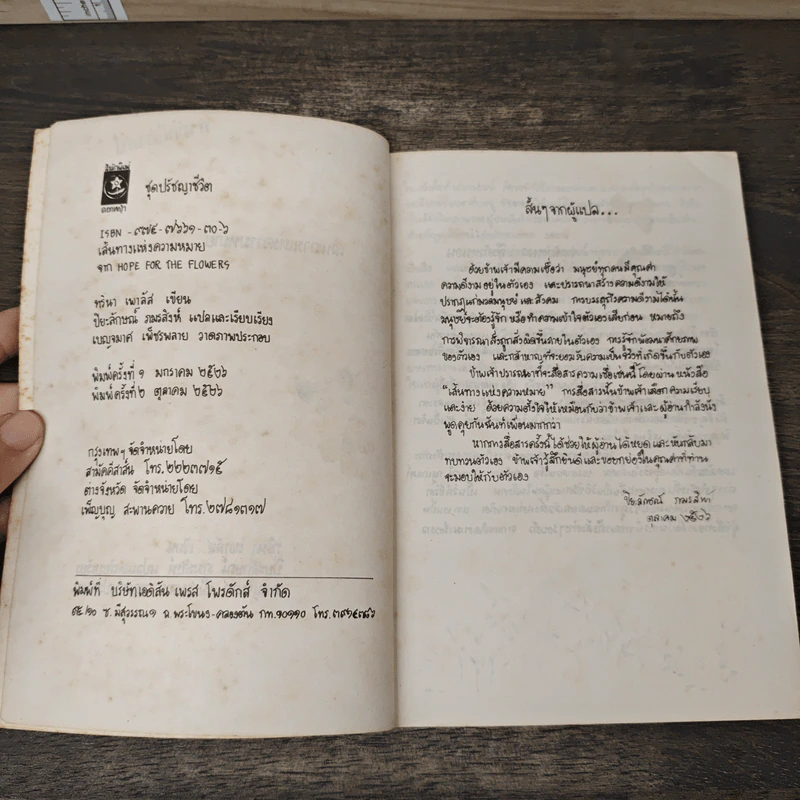 ดอกหญ้า
ชุดปรัชญาชีวิต
ISBN -๙๗๕-๗๖๖๑-๓๐-๖
เส้นทางแห่งความหมาย
จาก HOPE FOR THE FLOWERS
ทรินา เพาลัส เขียน
ปิยะลักษณ์ ภมรสิงห์ แปลและเรียบเรียง
เบญจมาศ เพ็ชรพลาย วาดภาพประกอบ
พิมพ์ครั้งที่ ๑ มกราคม ๒๕๒๖
พิมพ์ครั้งที่ ๒ ตุลาคม ๒๕๒๖
กรุงเทพฯ จัดจำหน่ายโดย
สามัคคีสาส์น โทร. ๒๒๒๓๗๑๕
ต่างจังหวัด จัดจำหน่ายโดย
เพ็ญบุญ สะพานควาย โทร. ๒๗๘๑๓๑๗
พิมพ์ที่ บริษัทเอดิสัน เพรส โพรดักส์ จำกัด
ซ.มีสุวรรณ๑ ถ.พระโขนง-คลองตัน กท.๑๐๑๑๐
สั้นๆจากผู้แปล...
ด้วยข้าพเจ้ามีความเชื่อว่า มนุษย์ทุกคนมีคุณค่า
ความดีงามอยู่ในตัวเอง และปรารถนาสร้างความดีงามให้
ปรากฏแก่มวลมนุษย์และสังคม การบรรลุถึงความดีงามได้นั้น
มนุษย์จะต้องรู้จักหรือทำความเข้าใจตัวเองเสียก่อน หมายถึง
การพิจารณาสิ่งถูกสิ่งผิดขึ้นภายในตัวเอง การรู้จักพัฒนาศักยภาพ
ของตัวเอง และกล้าหาญที่จะยอมรับความเป็นจริงที่เกิดขึ้นกับตัวเอง
ข้าพเจ้าปรารถนาที่จะสื่อสารความเชื่อเช่นนี้โดยผ่านหนังสือ
"เส้นทางแห่งความหมาย" การสื่อสารนั้นข้าพเจ้าเลือกความเรียบ
และง่าย ด้วยความตั้งใจให้เหมือนกับว่าข้าพเจ้าและผู้อ่านกำลังนั่ง
พูดคุยกันฉันท์เพื่อนมากกว่า
หากการสื่อสารครั้งนี้ได้ช่วยให้ผู้อ่านได้หยุดและหันกลับมา
ทบทวนตัวเอง ข้าพเจ้ารู้สึกยินดีและขอยกย่องในคุณค่าที่ท่าน
จะมอบให้กับตัวเอง
ปิยะลักษณ์ ภมรสิงห์
ตุลาคม ๒๕๒๖